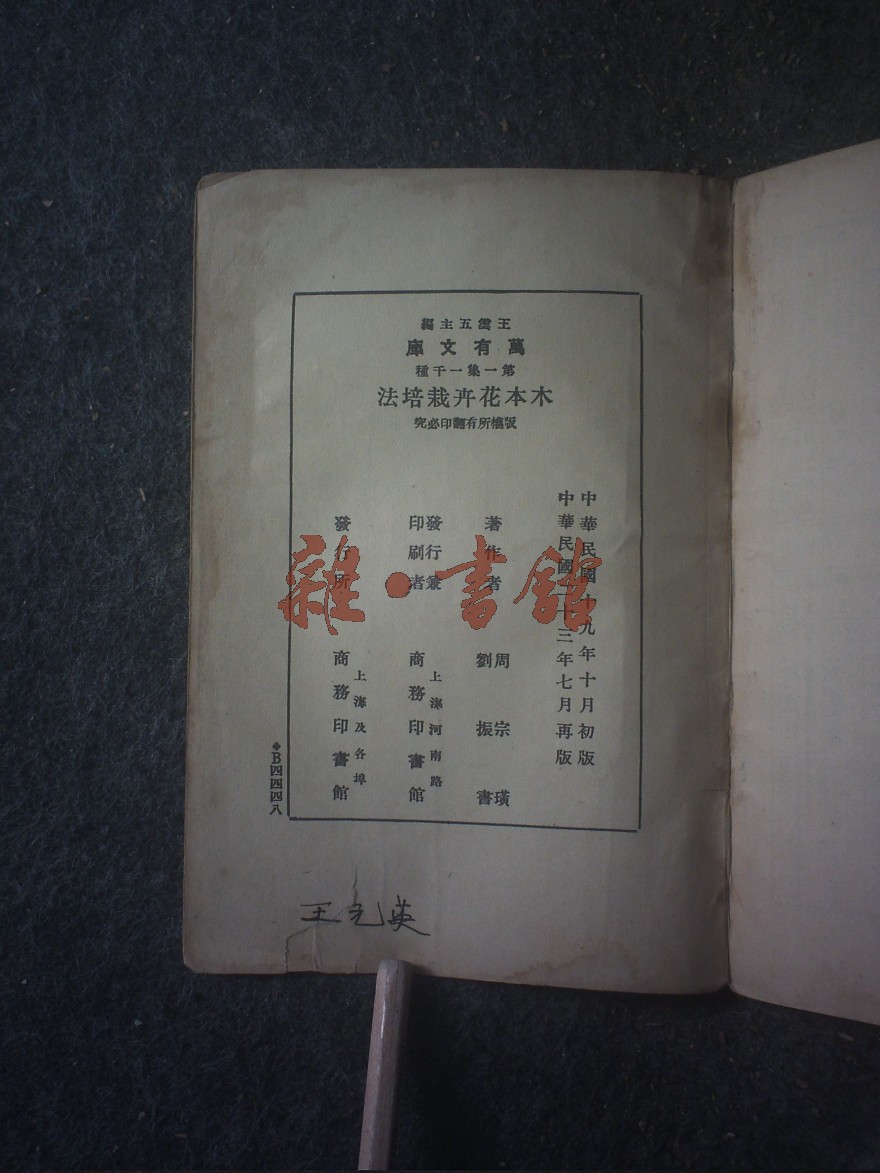 王雲五主編
萬有文庫
第一集一千種
木本花卉栽培法
版權所有翻印必究
中華民國十九年十月初版
中華民國二十三年七月再版
著作者
周宗璜
劉振書
發行兼
印刷者
上海河南路
商務印書館
發行所
上海及各埠
商務印書館
B四四四八
雜·書館